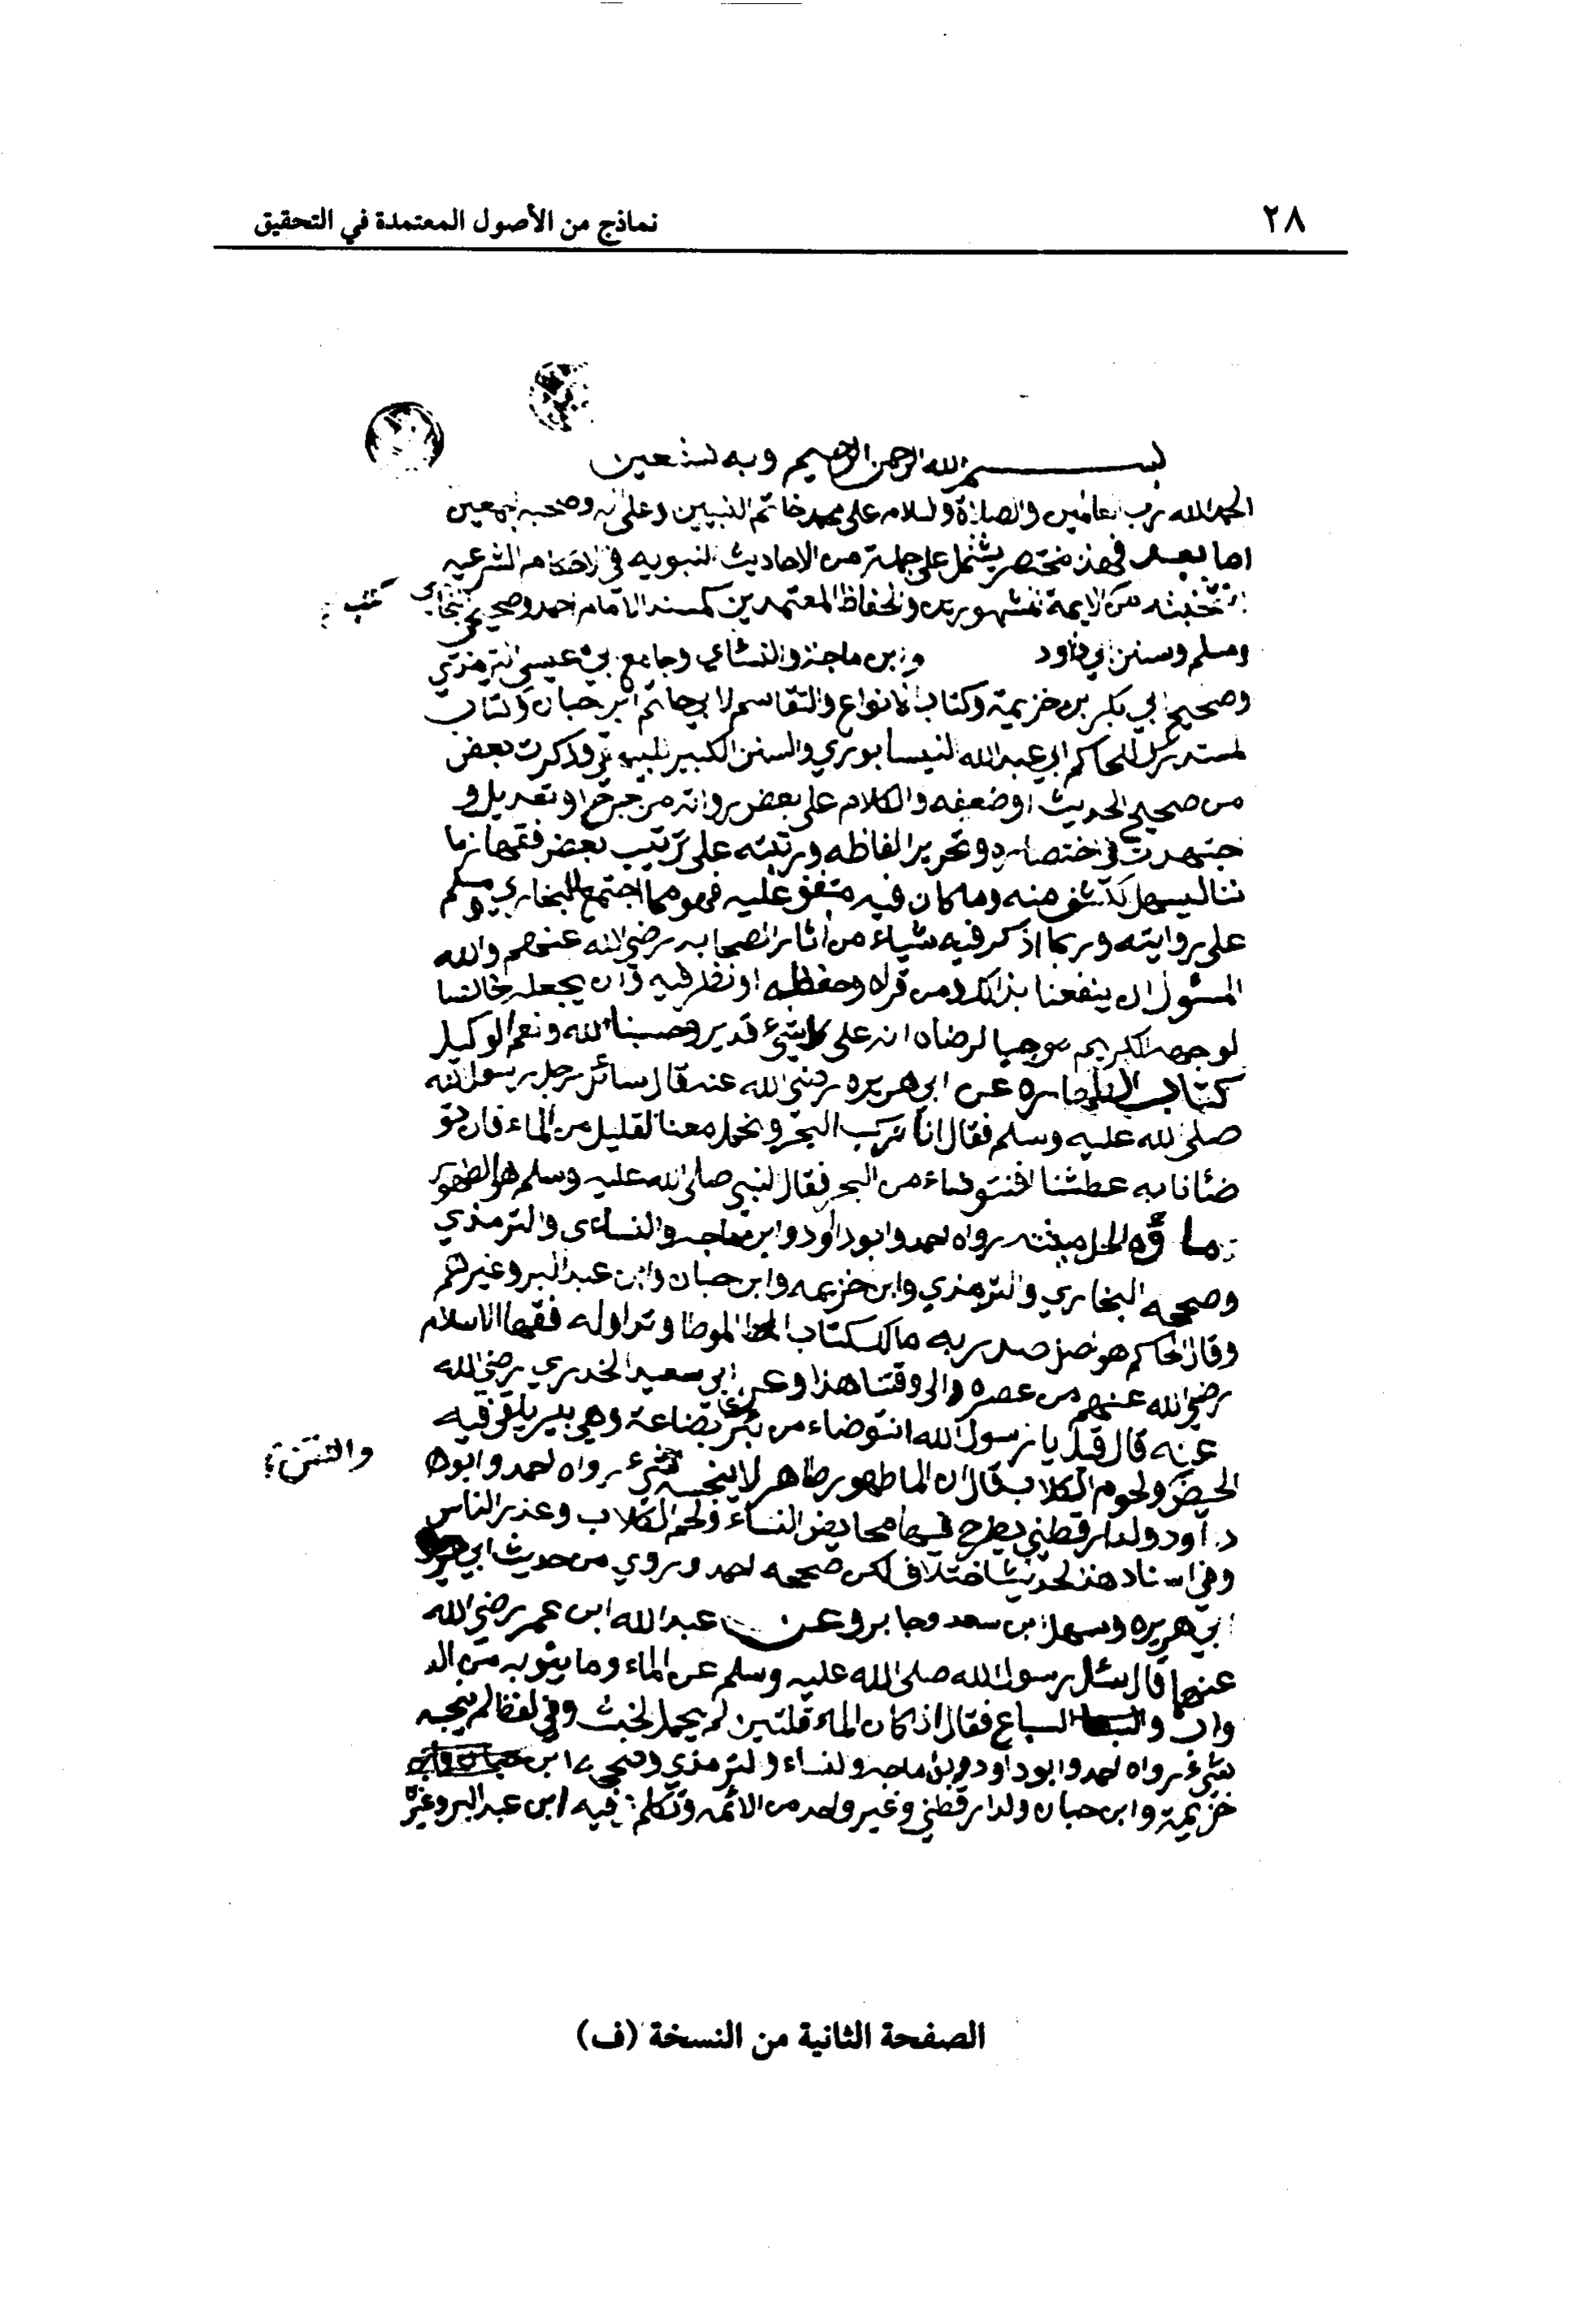 ٢٨
نماذج من الأصول المعتمدة في التحقيق
بسم الله الرحمن الرحيم وبه نستعين
الحمد لله رب العالمين والصلاة والسلام على محمد خاتم النبيين وعلى اله وصحبه اجمعين
اما بعد فهذا مختصر يشتمل على جملة من الاحاديث النبويه في الاحكام الشرعيه
انتخبته من الايمة المشهورين والحفاظ المعتمدين كمسند الامام احمد وصحيحي البخاري
كتب
ومسلم وسنن ابي داود وابن ماجة والنسائي وجامع ابي عيسى الترمذي
وصحيح ابي بكر بن خزيمة وكتاب الانواع والتقاسم لابي حاتم ابن حبان وكتاب
لمستدرك للحاكم ابي عبد الله لنيسابوري والسنن الكبير للبيهقي وذكرت بعض
من صحيح الحديث او ضعفه والكلام على بعض رواته من جرح او تعديل و
جتهدت في اختصاره وتحرير الفاظه ورتبته على ترتيب بعض فقهاء زما
ننا ليسهل كشف منه وما كان فيه متفق عليه فهو مما اجتمع البخاري ومسلم
على روايته وربما اذكر فيه شياء من اثار الصحابه رضي الله عنهم والله
المسئول ان ينفعنا بذالك ومن قراه وحفظه او نظر فيه وان يجعله خالصا
لوجهه الكريم موجبا لرضاه انه على كل شيء قدير وحسبنا الله ونعم الوكيل
كتاب الطهاره عن ابي هريره رضي الله عنه قال سائل رجل رسول الله
صلى لله عليه وسلم فقال انا نركب البحر ونحمل معنا لقليل من الماء فان تو
ضئانا به عطشنا افنتوضاء من البحر فقال لنبي صلى الله عليه وسلم هو الطهور
ماؤه الحل ميتته رواه احمد وابو داود وابن ماجه والنساءى والترمذي
وصححه البخاري والترمذي وابن خزيمه وابن حبان وابن عبد البر وغيرهم
وقال الحاكم هو اصل صدر به مالك كتاب الموطا وتداوله فقها الاسلام
رضي الله عنهم من عصره والى وقتنا هذا وعن ابي سعيد الخدري رضي الله
عنه قال قيل يا رسول الله انتوضاء من بئر بضاعة وهي بير يلقى فيه
والنتن
الحيض ولحوم الكلاب قال ان الما طهور طاهر لا ينجسه شيء رواه احمد وابو
داود ولدارقطني يطرح فيها محايض النساء ولحم الكلاب وعذر الناس
وفي اسناد هذ لحديث اختلاف لكن صححه احمد وروي من حديث ابي
ابي هريره وسهل ابن سعد وجابر وعن عبد الله ابن عمر رضي الله
عنهما قال سئل رسول الله صلى الله عليه وسلم عن الماء وما ينوبه من الد
واب والسباع فقال اذ كان الماء قلتين لم يحمل لخبث وفي لفظ لم ينجسه
شيء رواه احمد وابو داود وبن ماجه ولنساء ولترمذي وصححه ابن
خزيمة وابن حبان ولدارقطني وغير واحد من الائمه وتكلم فيه ابن عبد البر وغيره
الصفحة الثانية من النسخة (ف)